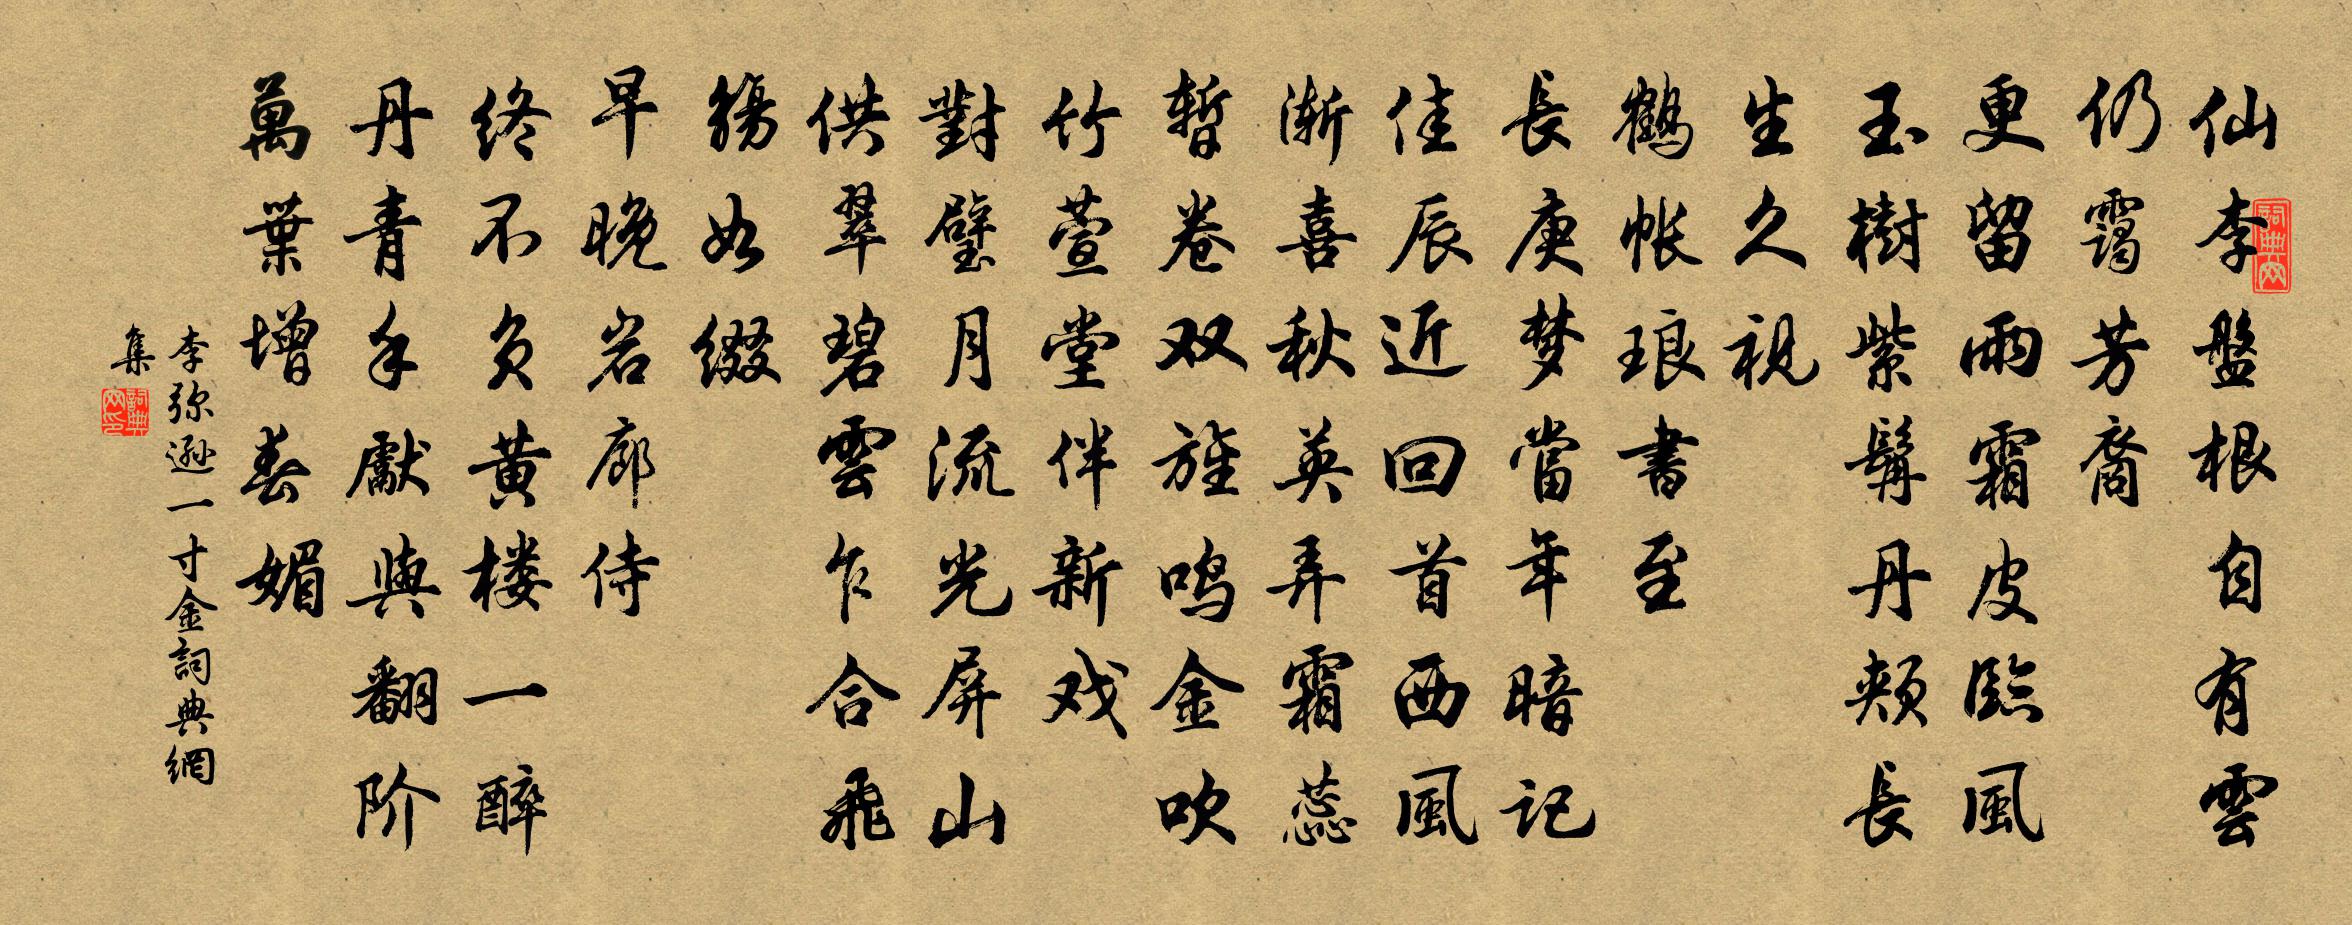 仙李盤根自有雲
仍靄芳裔
更留雨霜皮臨風
玉樹紫髯丹頰長
生久視
鶴帐琅書至
長庚梦當年暗记
佳辰近回首西風
渐喜秋英弄霜蕊
暫卷双旌鸣金吹
竹萱堂伴新戏
對璧月流光屏山
供翠碧雲乍合飛
觴如缀
早晚岩廊侍
终不负黄楼一醉
丹青手獻與翻阶
萬葉增春媚
李弥遜一寸金詞典網
集
詞典网
詞典网印